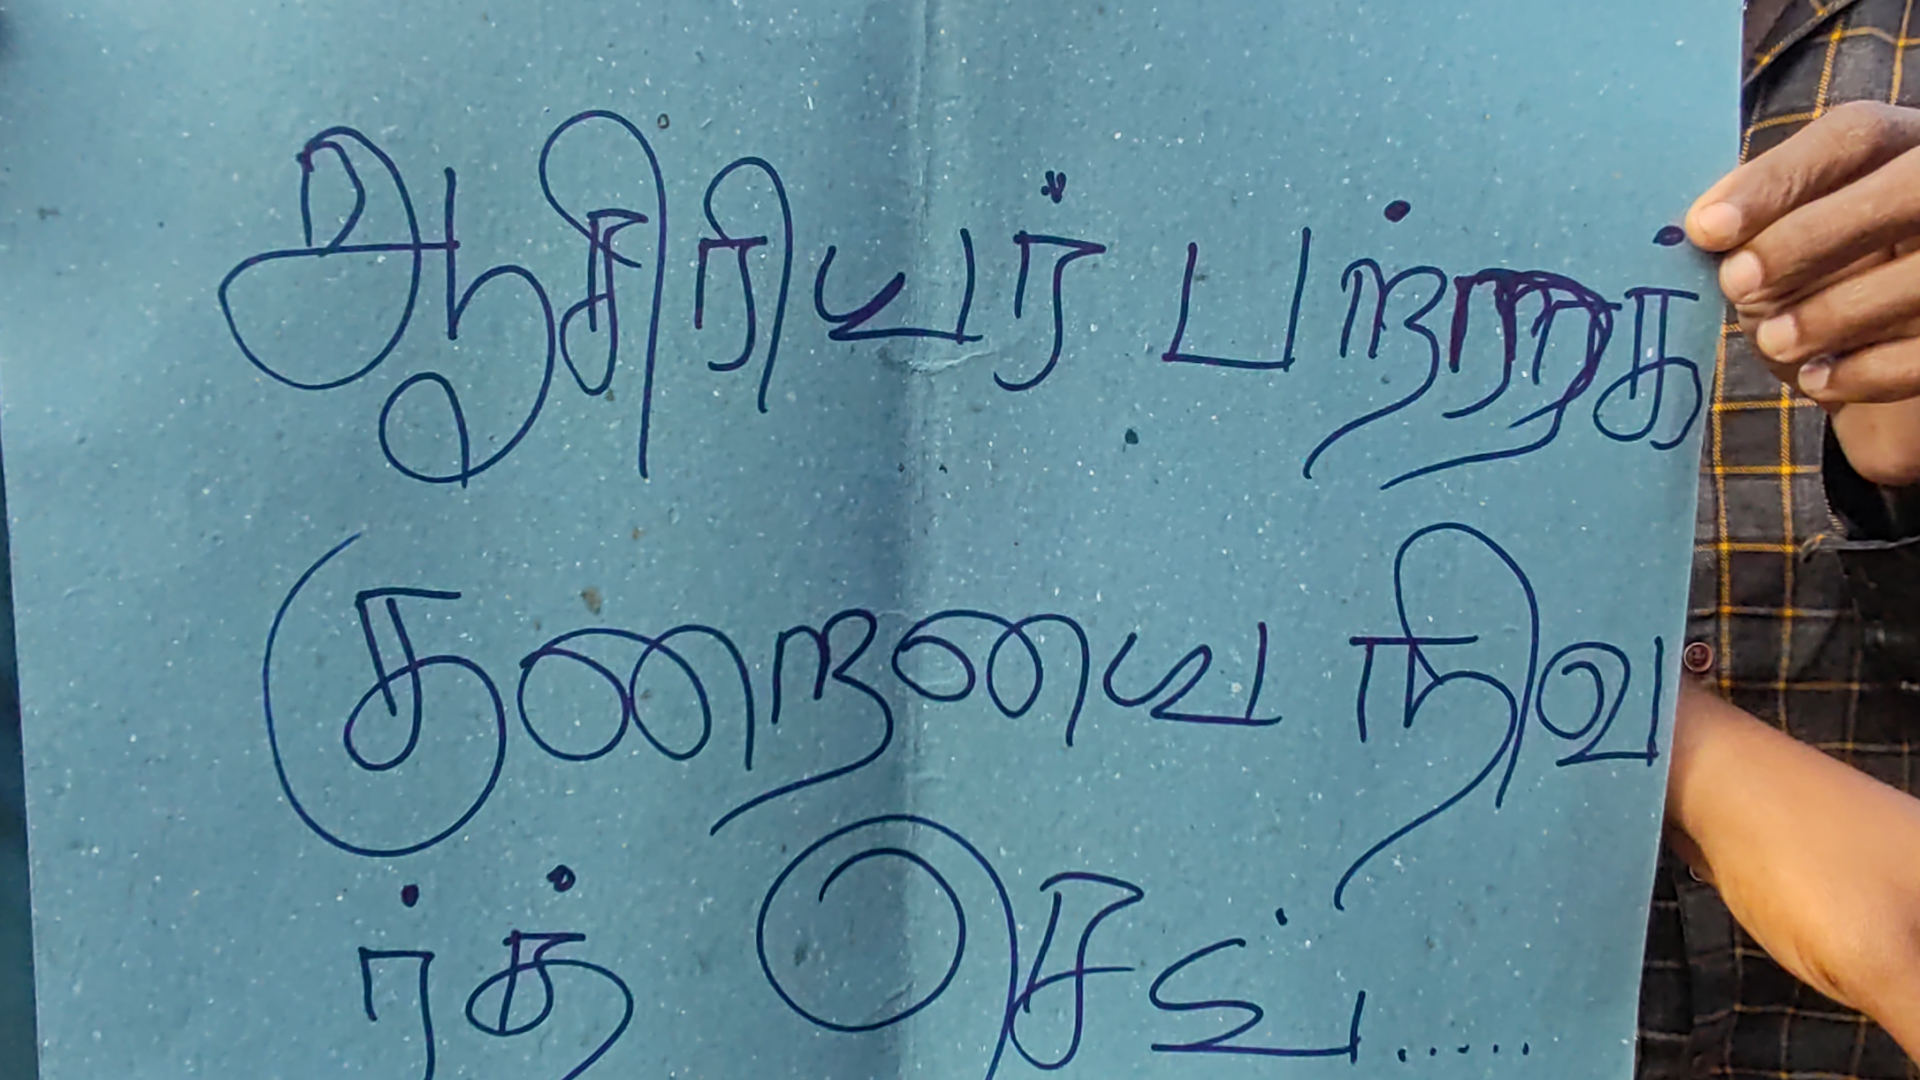 ஆசிரியர் பற்றாக்
குறையை நிவ
ர்த் செய்.....